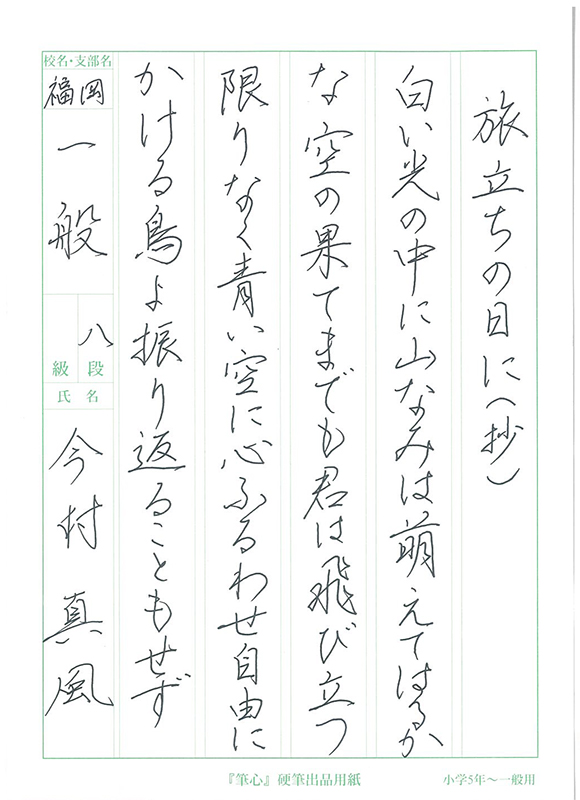 旅立ちの日に(抄)
白い光の中に山なみは萌えてはるか
な空の果てまでも君は飛び立つ
限りなく青い空に心ふるわせ自由に
かける鳥よ振り返ることもせず
校名・支部名
福岡
一般
八段
級
氏名
今村真風
『筆心』硬筆出品用紙
小学5年～一般用